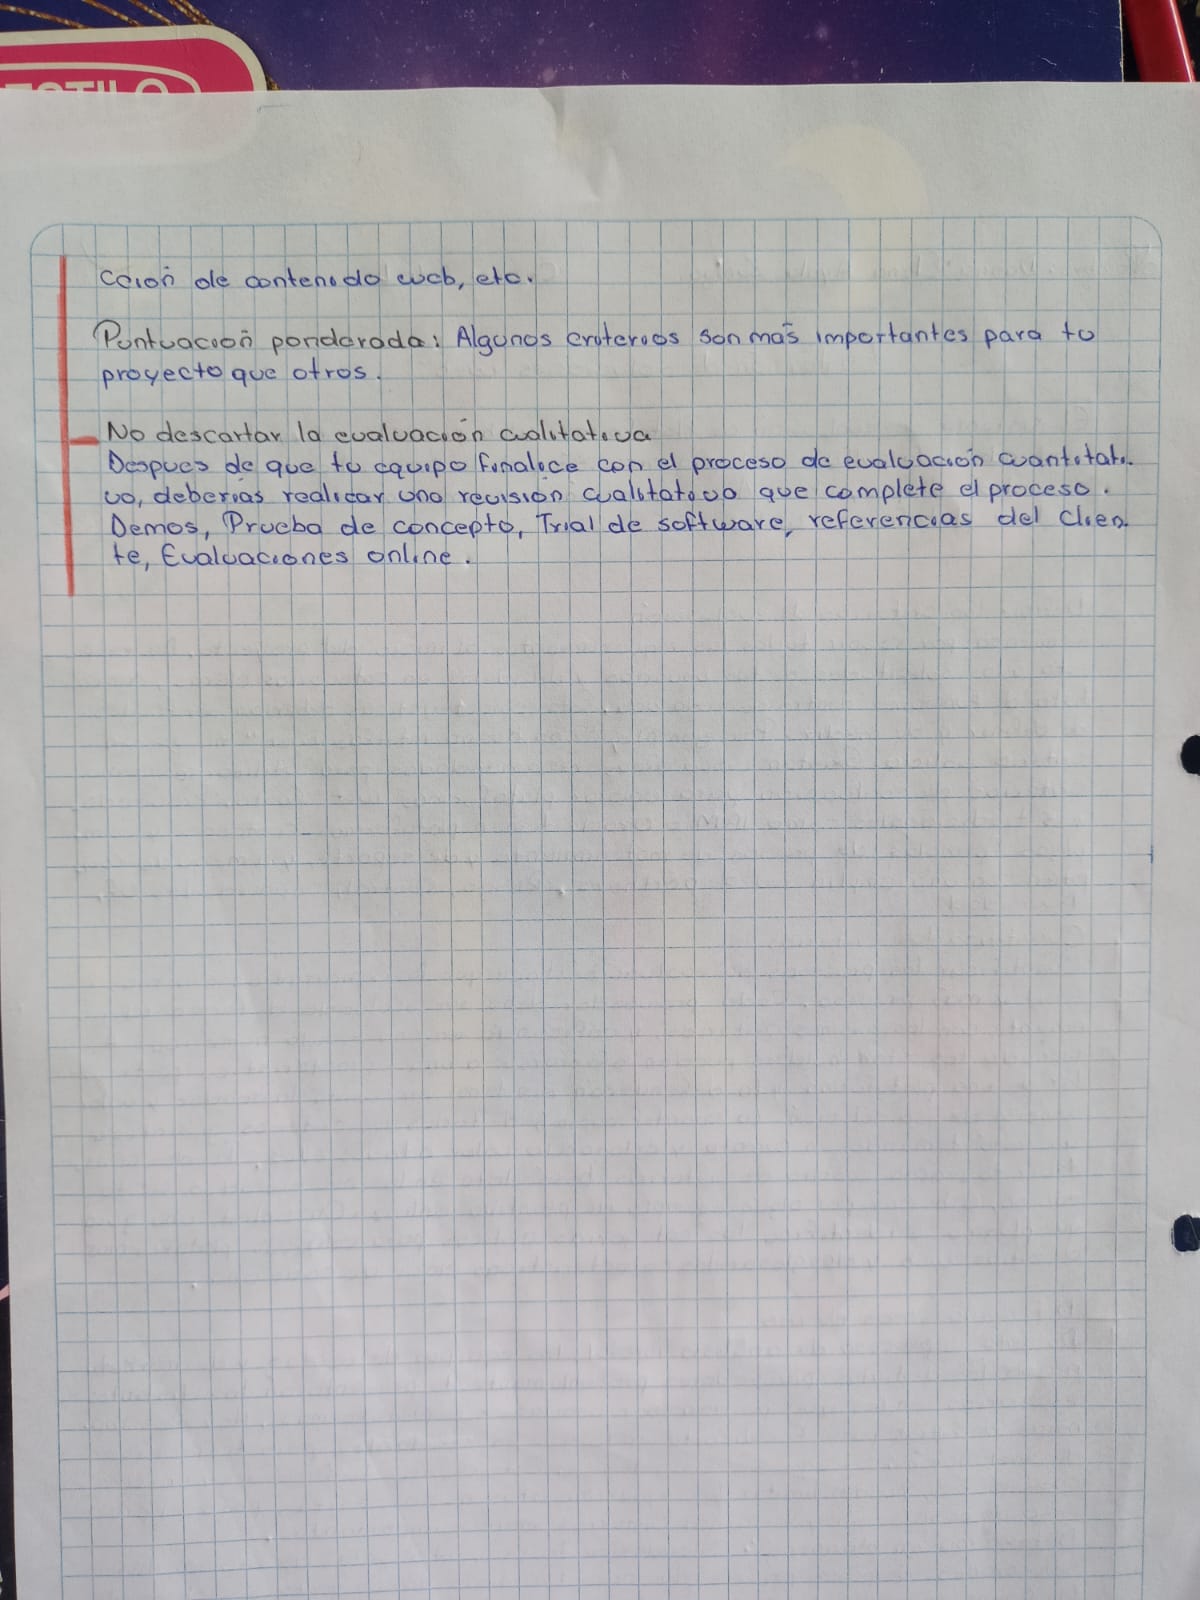 ESTILO
cción de contenido web, etc.
Puntuación ponderada: Algunos criterios son más importantes para tu
proyecto que otros.
No descartar la evaluación cualitativa
Despues de que tu equipo finalice con el proceso de evaluación cuantitati.
va, deberías realizar una revisión cualitativa que complete el proceso.
Demos, Prueba de concepto, Trial de software, referencias del clien.
te, Evaluaciones online.